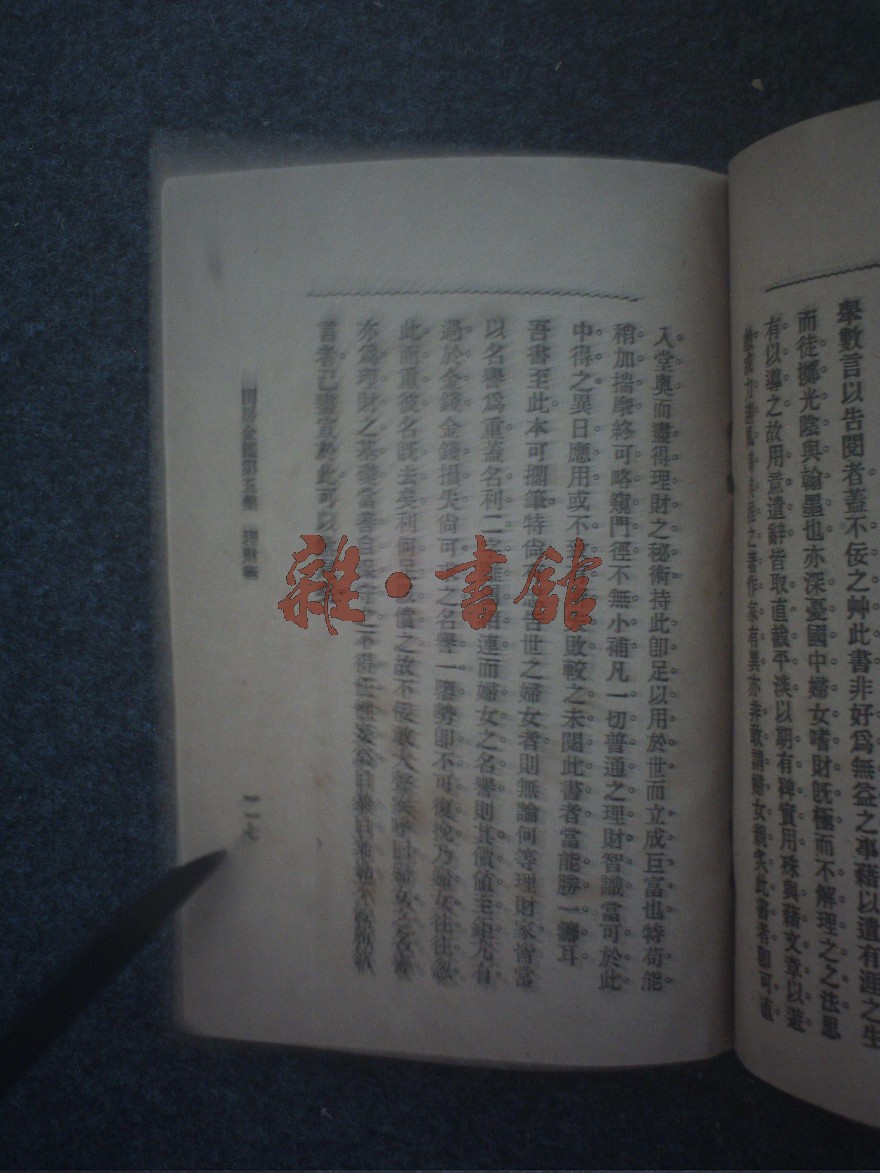 舉數言以告閱者蓋不佞之艸此書非好爲無益之事藉以遣有涯之生
而徒擲光陰與翰墨也亦深憂國中婦女嗜財旣極而不解理之之法思
有以導之故用意遣辭皆取直截平淡以期有裨實用殊與藉文章以遊
之著作家有異亦非敢謂婦女親炙此書者卽可直
入堂奧而盡得理財之秘術持此卽足以用於世而立成巨富也特苟能
稍加揣摩終可略窺門徑不無小補凡一切普通之理財智識當可於此
中得之異日應用或不至 敗較之未閱此書者當能勝一籌耳
吾書至此本可擱筆特尙 告世之婦女者則無論何等理財家皆當
以名譽爲重蓋名利二字 相連而婦女之名譽則其價值至鉅尤有
過於金錢金錢損失尙可 之名譽一墮勢卽不可復挽乃婦女往往
此而重彼名旣去矣利何足 償之故不佞敢大聲疾呼曰婦女之名譽
亦爲理財之基礎當善自保守之不得任性妄爲自暴自棄
言者已盡宣於此可以
閨房金鑑第五集 理財術
一一七
雜·書館